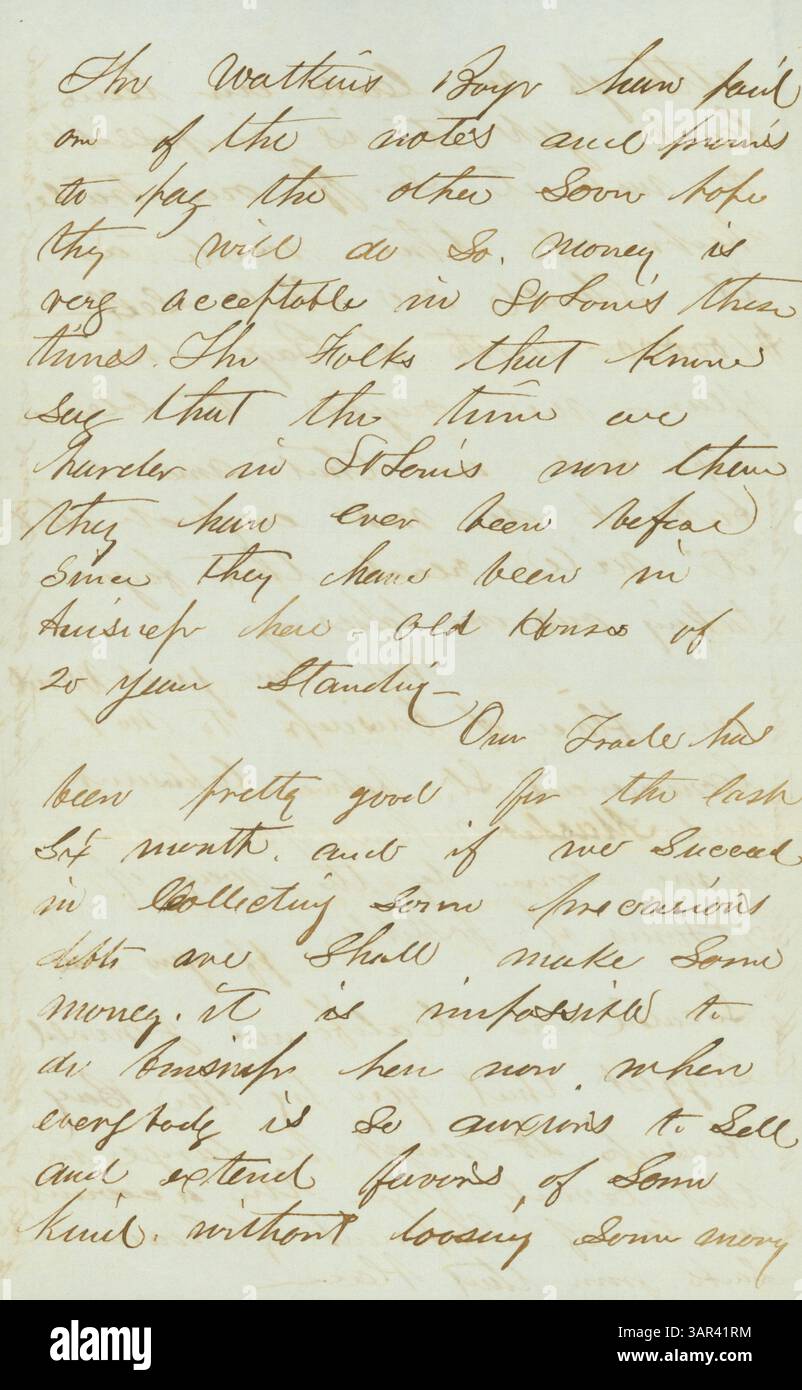 The Watkins Boys have paid
one of the notes and promis
to pay the other Soon hope
they will do So. Money is
very acceptable in St Louis these
times. The Folks that know
say that the time are
harder in St Louis now then
they have ever been before
Since they have been in
buisness here - Old Houses of
20 year Standing -
Our Trade has
been pretty good for the last
Six month. and if we Succeed
in Collecting Some precarious
debts we Shall make Some
money. it is impossible to
do buisness here now when
everybody is So anxious to Sell
and extend favors of Some
kind. without loosing Some mony
alamy
alamy
alamy
alamy
Image ID: 3AR41RM
www.alamy.com